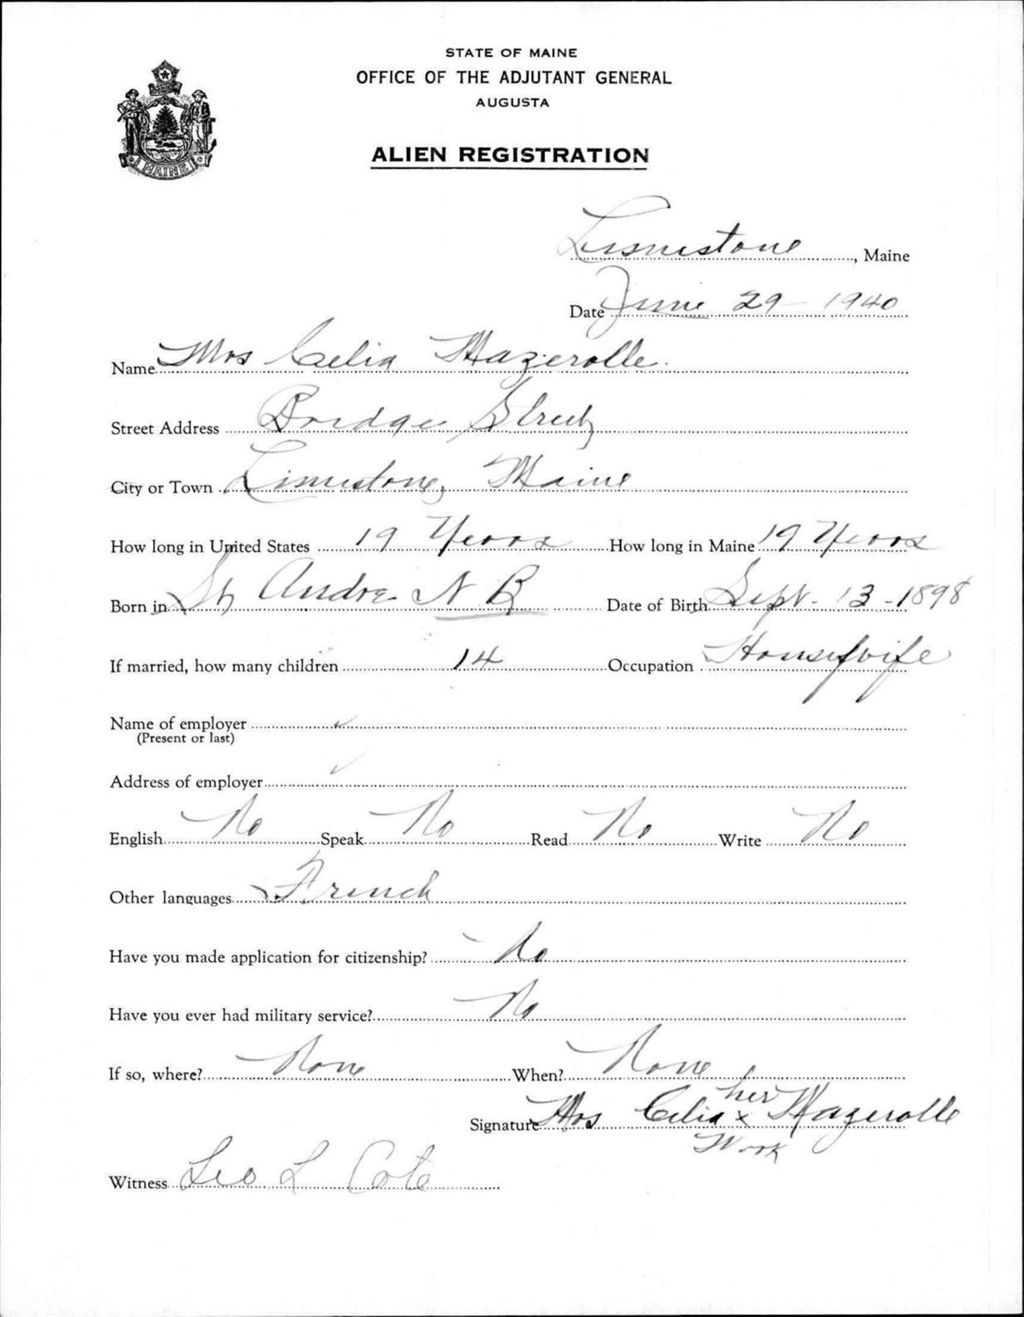 STATE OF MAINE
OFFICE OF THE ADJUTANT GENERAL
AUGUSTA
ALIEN REGISTRATION
MAINE
Limestone, Maine
Date June 29 - 1940
Name Mrs Celia Mazerolle
Street Address Bridge Street
City or Town Limestone, Maine
How long in United States 19 Years How long in Maine 19 Years
Born in St Andre N B Date of Birth Sept - 13 - 1898
If married, how many children 14 Occupation Housewife
Name of employer ✓
(Present or last)
Address of employer ✓
English No Speak No Read No Write No
Other languages French
Have you made application for citizenship? No
Have you ever had military service? No
If so, where? None When? None
her
Signature Mrs Celia x Mazerolle
Mark
Witness Leo L Cote